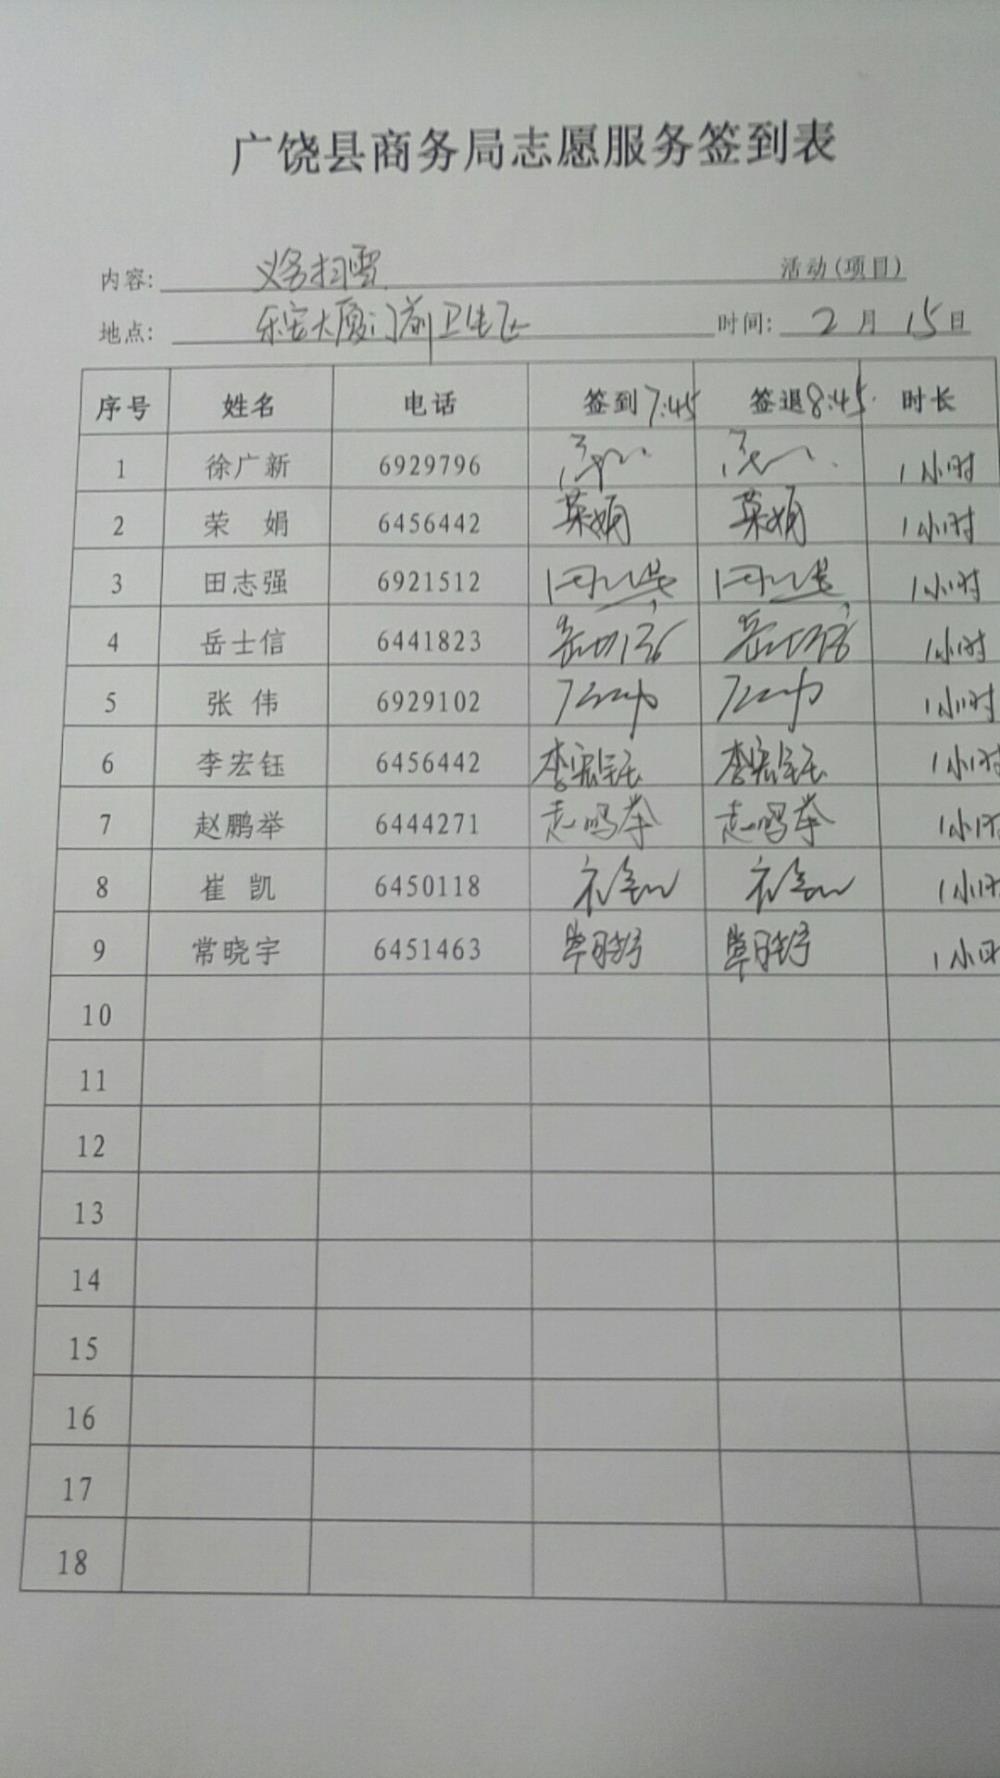 广饶县商务局志愿服务签到表
内容: 义务扫雪 活动(项目)
地点: 乐安大厦门前卫生区 时间: 2月15日
序号 姓名 电话 签到7:45 签退8:45 时长
1 徐广新 6929796 1小时
2 荣娟 6456442 荣娟 荣娟 1小时
3 田志强 6921512 1小时
4 岳士信 6441823 岳士信 岳士信 1小时
5 张伟 6929102 1小时
6 李宏钰 6456442 李宏钰 李宏钰 1小时
7 赵鹏举 6444271 赵鹏举 赵鹏举 1小时
8 崔凯 6450118 1小时
9 常晓宇 6451463 常晓宇 常晓宇 1小时
10
11
12
13
14
15
16
17
18